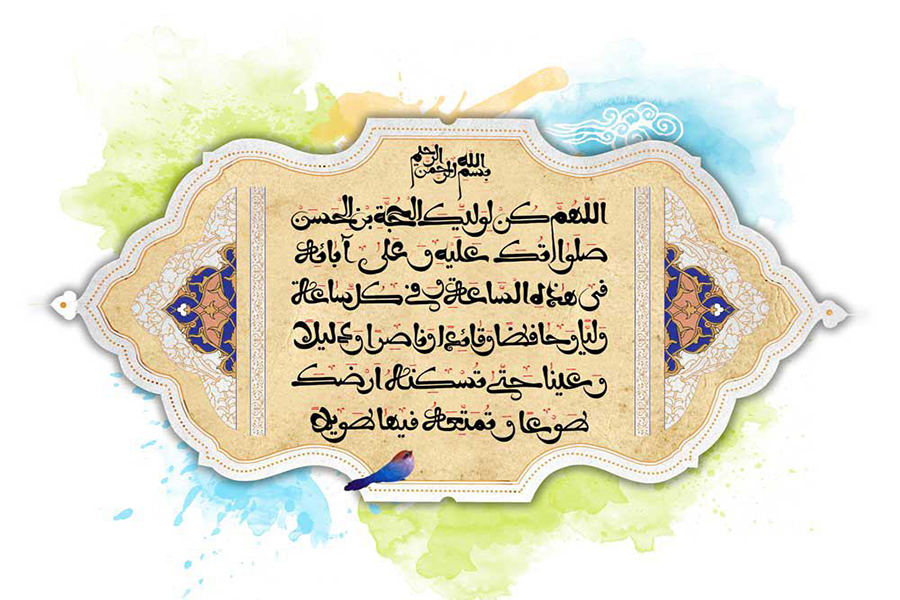 بسم الله الرحمن الرحيم
اللهم كن لوليك الحجة بن الحسن
صلواتك عليه و على آبائه
في هذه الساعة و في كل ساعة
وليا و حافظا و قائدا و ناصرا و دليلا
و عينا حتى تسكنه ارضك
طوعا و تمتعه فيها طويلا